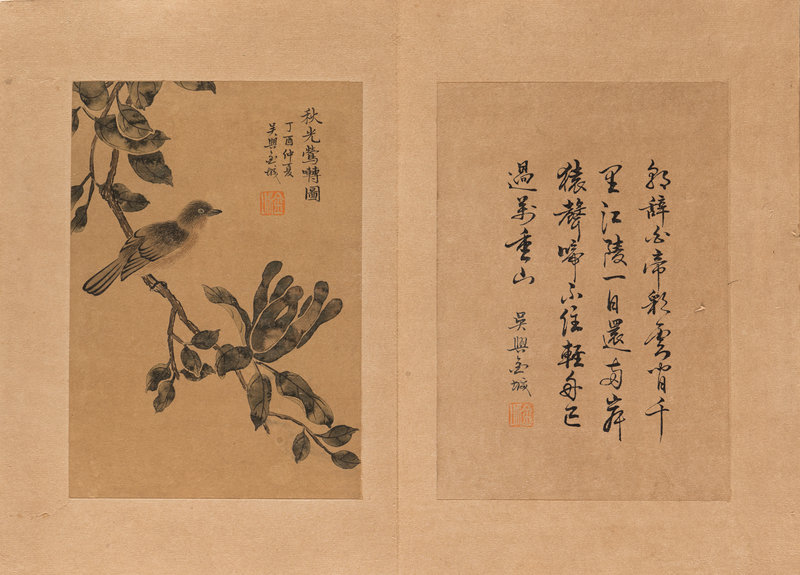 朝辭白帝彩雲間千
里江陵一日還兩岸
猿聲啼不住輕舟已
過萬重山
吳興金城
秋光鶯囀圖
丁酉仲夏
吳興金城